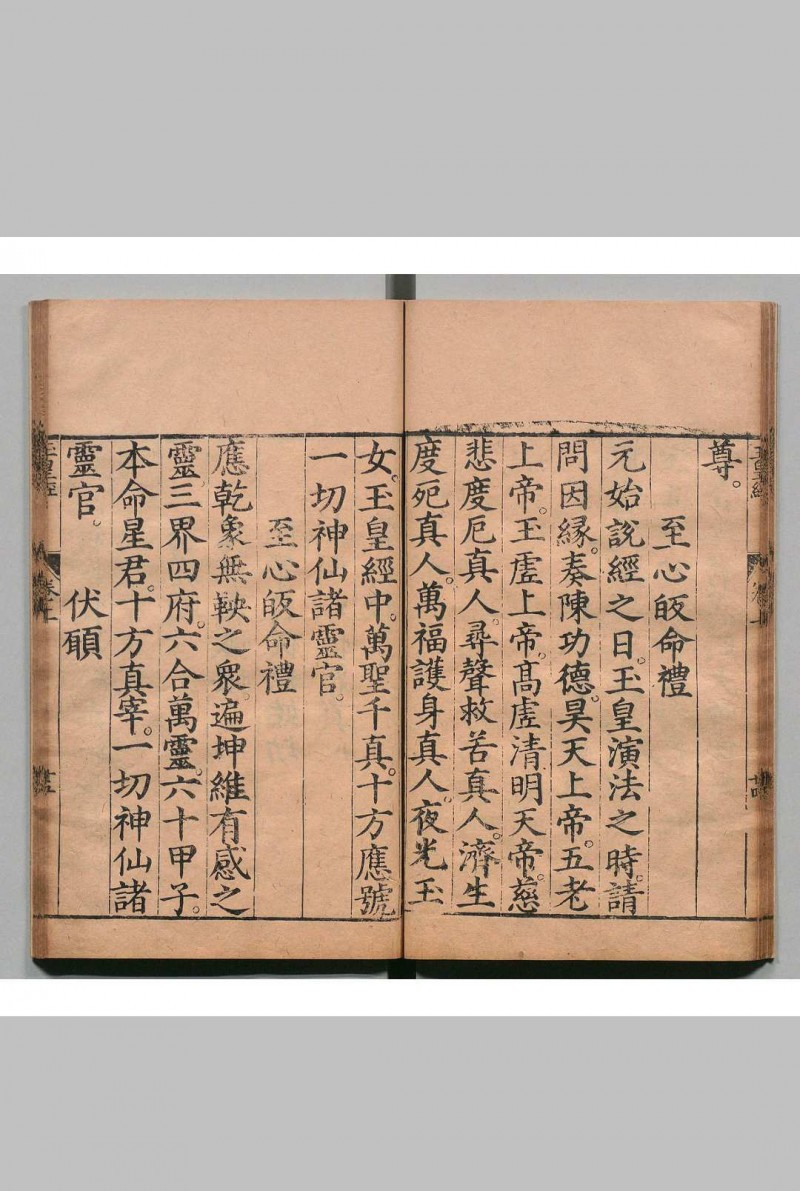 尊。
至心皈命禮
元始說經之日。玉皇演法之時。請
問因緣。奏陳功德。昊天上帝。五老
上帝。玉虛上帝。高虛清明天帝。慈
悲度厄真人。尋聲救苦真人。濟生
度死真人。萬福護身真人。夜光玉
女。玉皇經中。萬聖千真。十方應號
一切神仙諸靈官。
至心皈命禮
應乾象無鞅之衆。遍坤維有感之
靈。三界四府。六合萬靈。六十甲子。
本命星君。十方真宰。一切神仙諸
靈官。　伏願
玉皇經